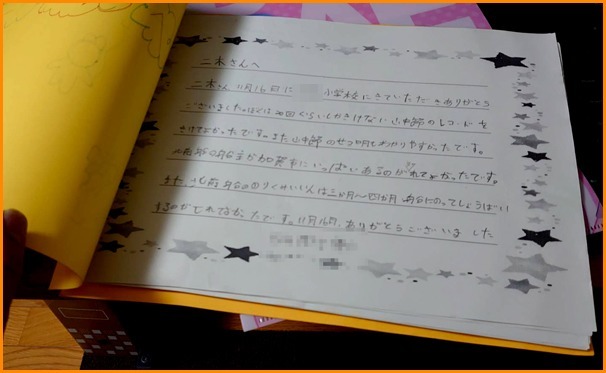 二木さんへ
二木さん11月16日に 小学校にきていただきありがとう
ございました。ぼくは 回ぐらいしかきけない山中節のレコードを
きけてよかったです。また山中節のせつ明もわかりやすかったです。
北前船の船主が加賀市にいっぱいいるのがしれてよかったです。
また、北前船ののりくみいんは三か月〜四か月 船にのってしょうばい
するのがしれてよかったです。11月16日、ありがとうございました